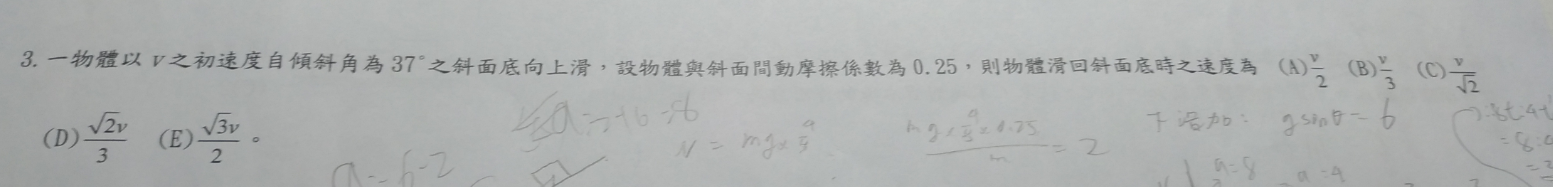 3. 一物體以 v 之初速度自傾斜角為 37° 之斜面底向上滑，設物體與斜面間動摩擦係數為 0.25，則物體滑回斜面底時之速度為 (A) v/2 (B) v/3 (C) v/√2
(D) √2v/3 (E) √3v/2 。
N = mg×4/5
= 2
gsinθ = 6
a = 6-2
a=8
a=4